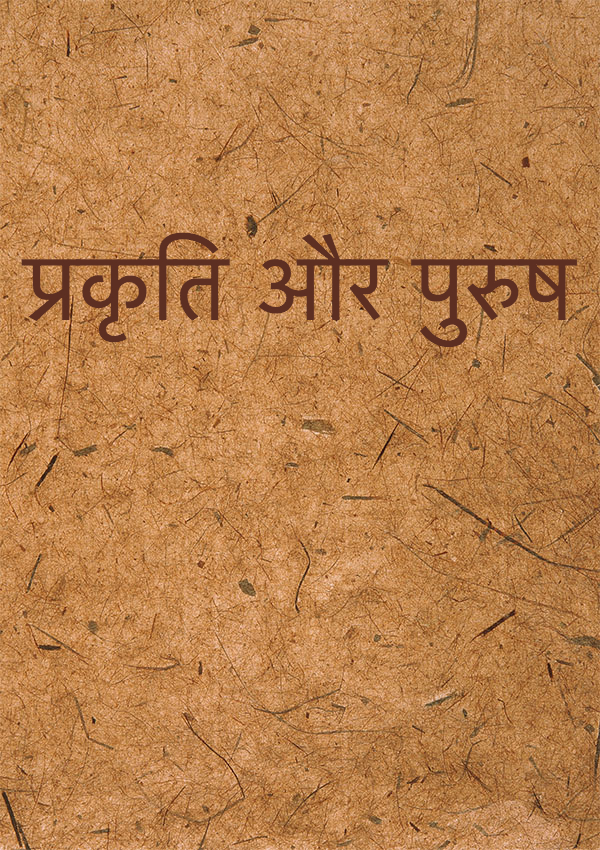 प्रकृति और पुरुष